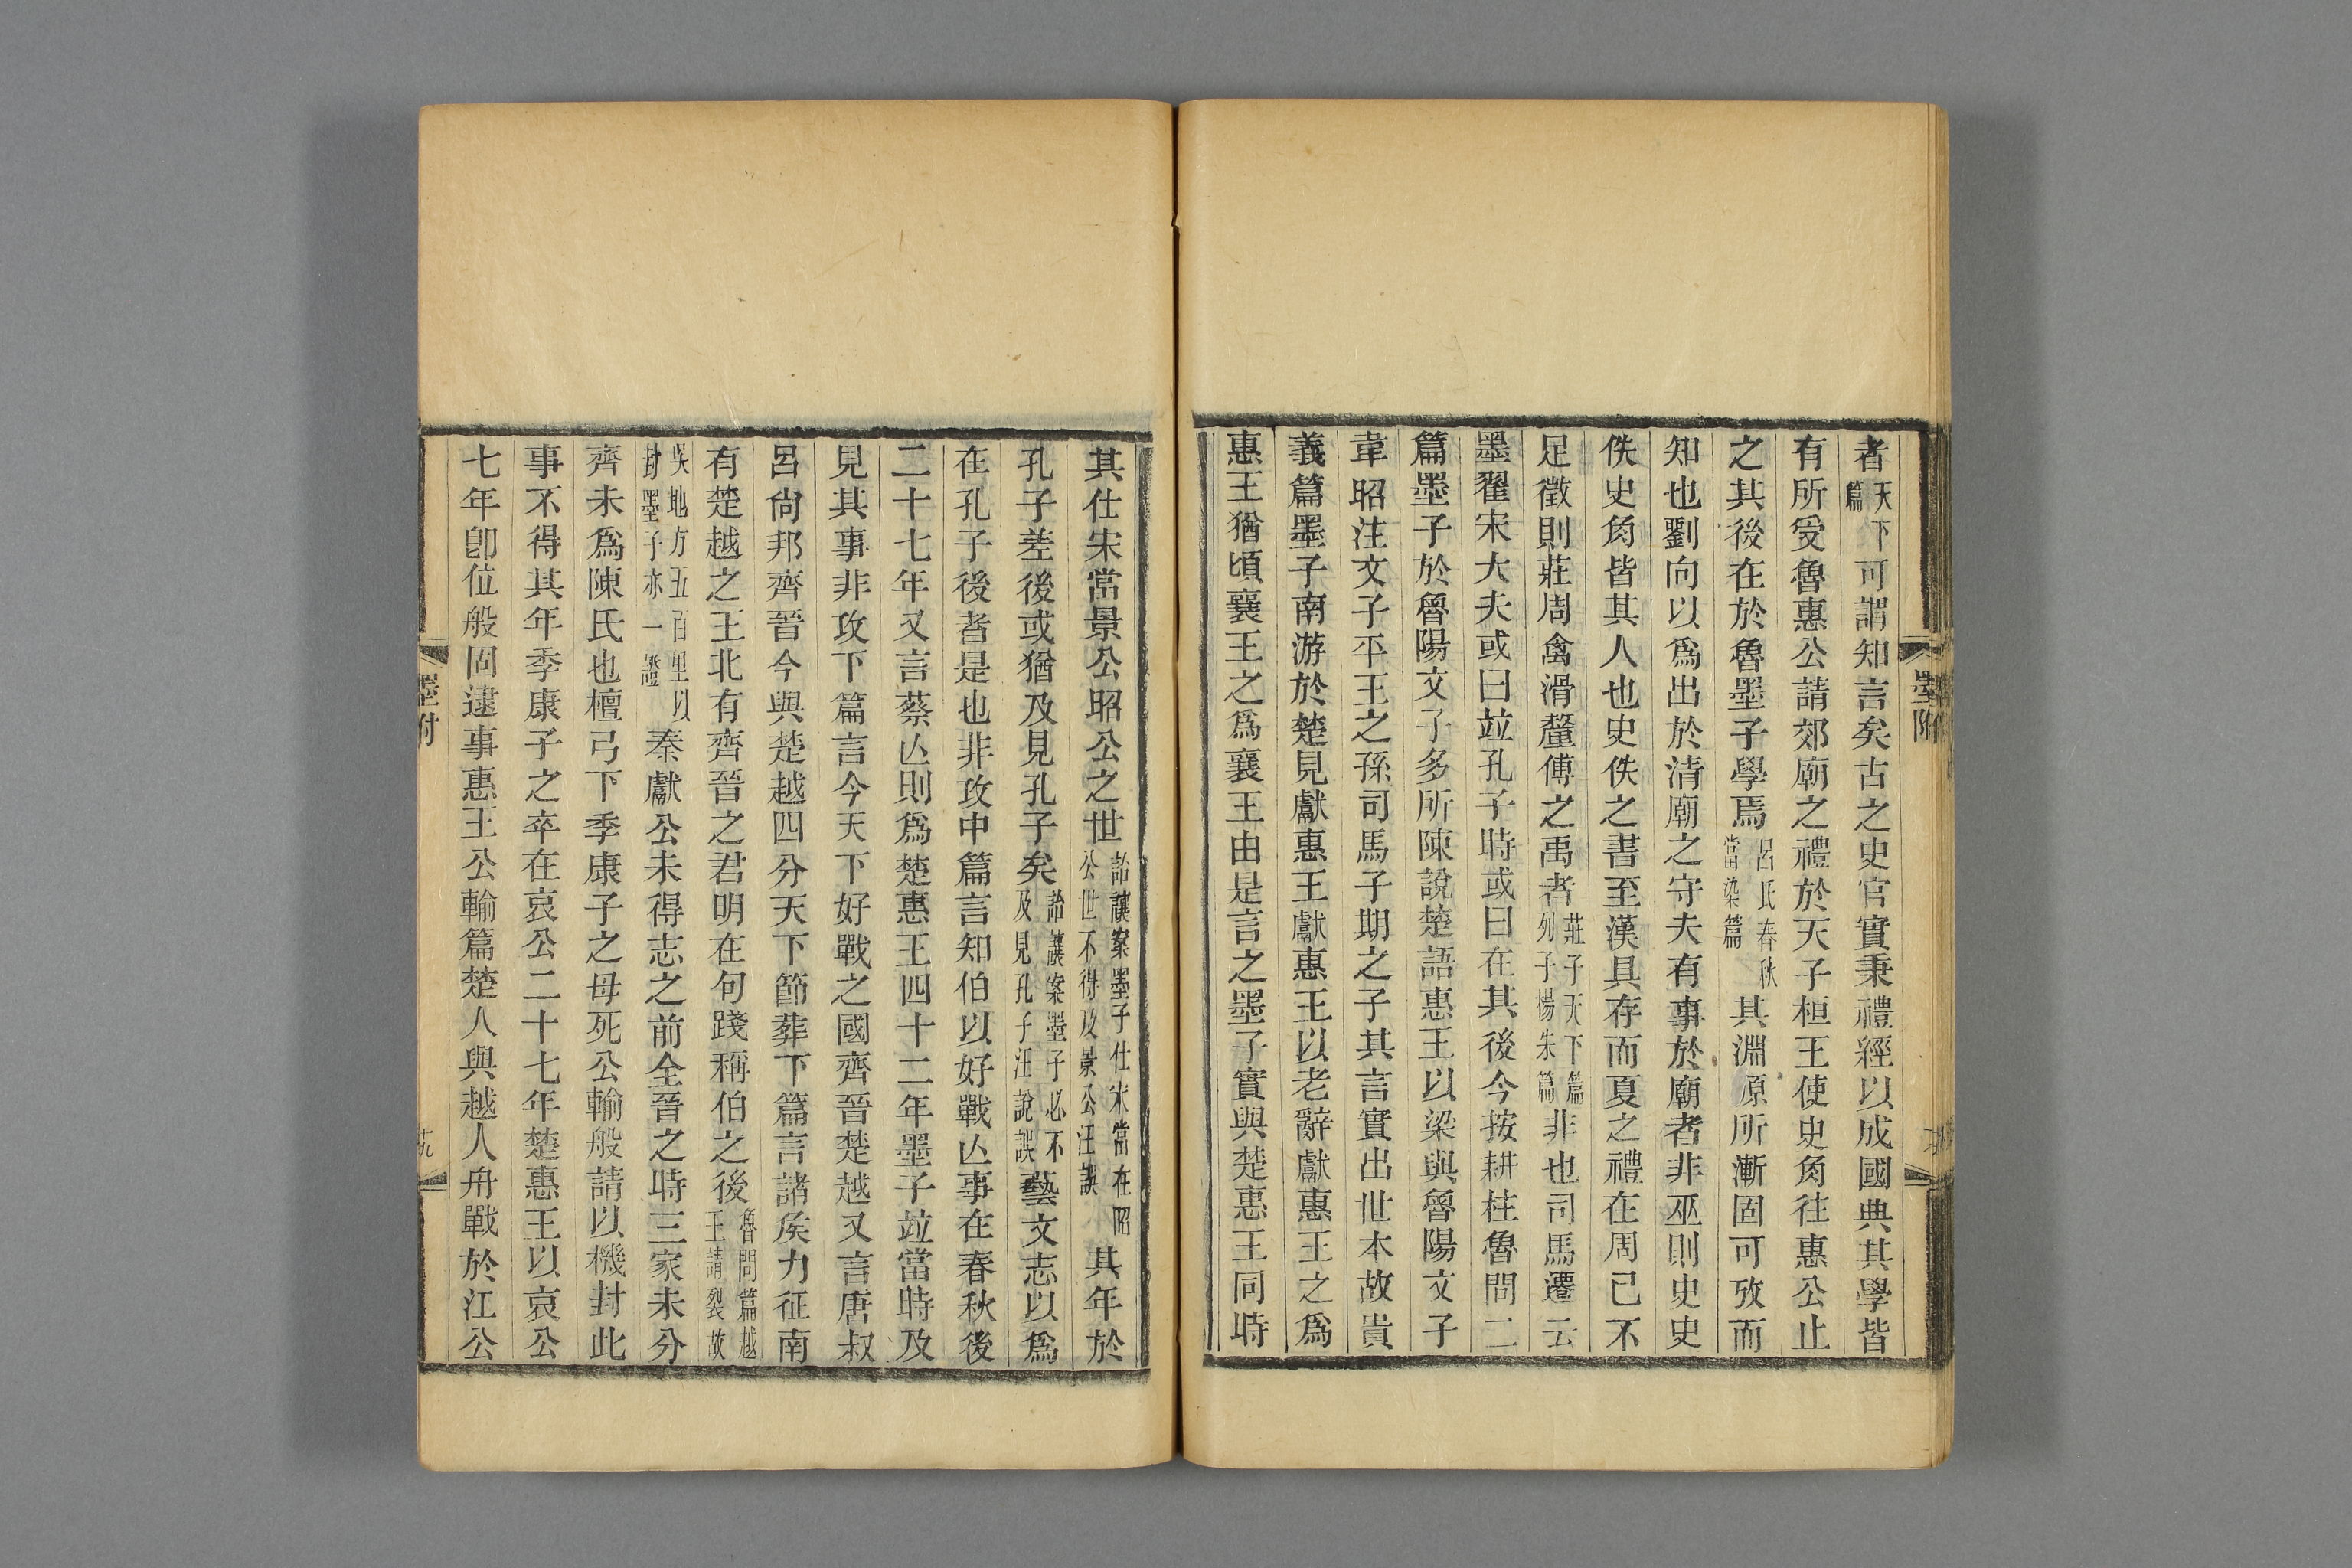 者天下篇可謂知言矣古之史官實秉禮經以成國典其學皆
有所受魯惠公請郊廟之禮於天子桓王使史角往惠公止
之其後在於魯墨子學焉呂氏春秋當染篇其淵原所漸固可攷而
知也劉向以爲出於淸廟之守夫有事於廟者非巫則史史
佚史角皆其人也史佚之書至漢具存而夏之禮在周已不
足徵則莊周禽滑釐傅之禹者莊子天下篇列子楊朱篇非也司馬遷云
墨翟宋大夫或曰竝孔子時或曰在其後今按耕柱魯問二
篇墨子於魯陽文子多所陳說楚語惠王以梁與魯陽文子
韋昭注文子平王之孫司馬子期之子其言實出世本故貴
義篇墨子南游於楚見獻惠王獻惠王以老辭獻惠王之爲
惠王猶頃襄王之爲襄王由是言之墨子實與楚惠王同時
墨附
其仕宋當景公昭公之世詒讓案墨子仕宋當在昭公世不得及景公汪誤其年於
孔子差後或猶及見孔子矣詒讓案墨子必不及見孔子汪說誤藝文志以爲
在孔子後者是也非攻中篇言知伯以好戰亾事在春秋後
二十七年又言蔡亾則爲楚惠王四十二年墨子竝當時及
見其事非攻下篇言今天下好戰之國齊晉楚越又言唐叔
呂尙邦齊晉今與楚越四分天下節葬下篇言諸矦力征南
有楚越之王北有齊晉之君明在句踐稱伯之後魯問篇越王請裂故
吳地方五百里以封墨子亦一證秦獻公未得志之前全晉之時三家未分
齊未爲陳氏也檀弓下季康子之母死公輸般請以機封此
事不得其年季康子之卒在哀公二十七年楚惠王以哀公
七年卽位般固逮事惠王公輸篇楚人與越人舟戰於江公
墨附